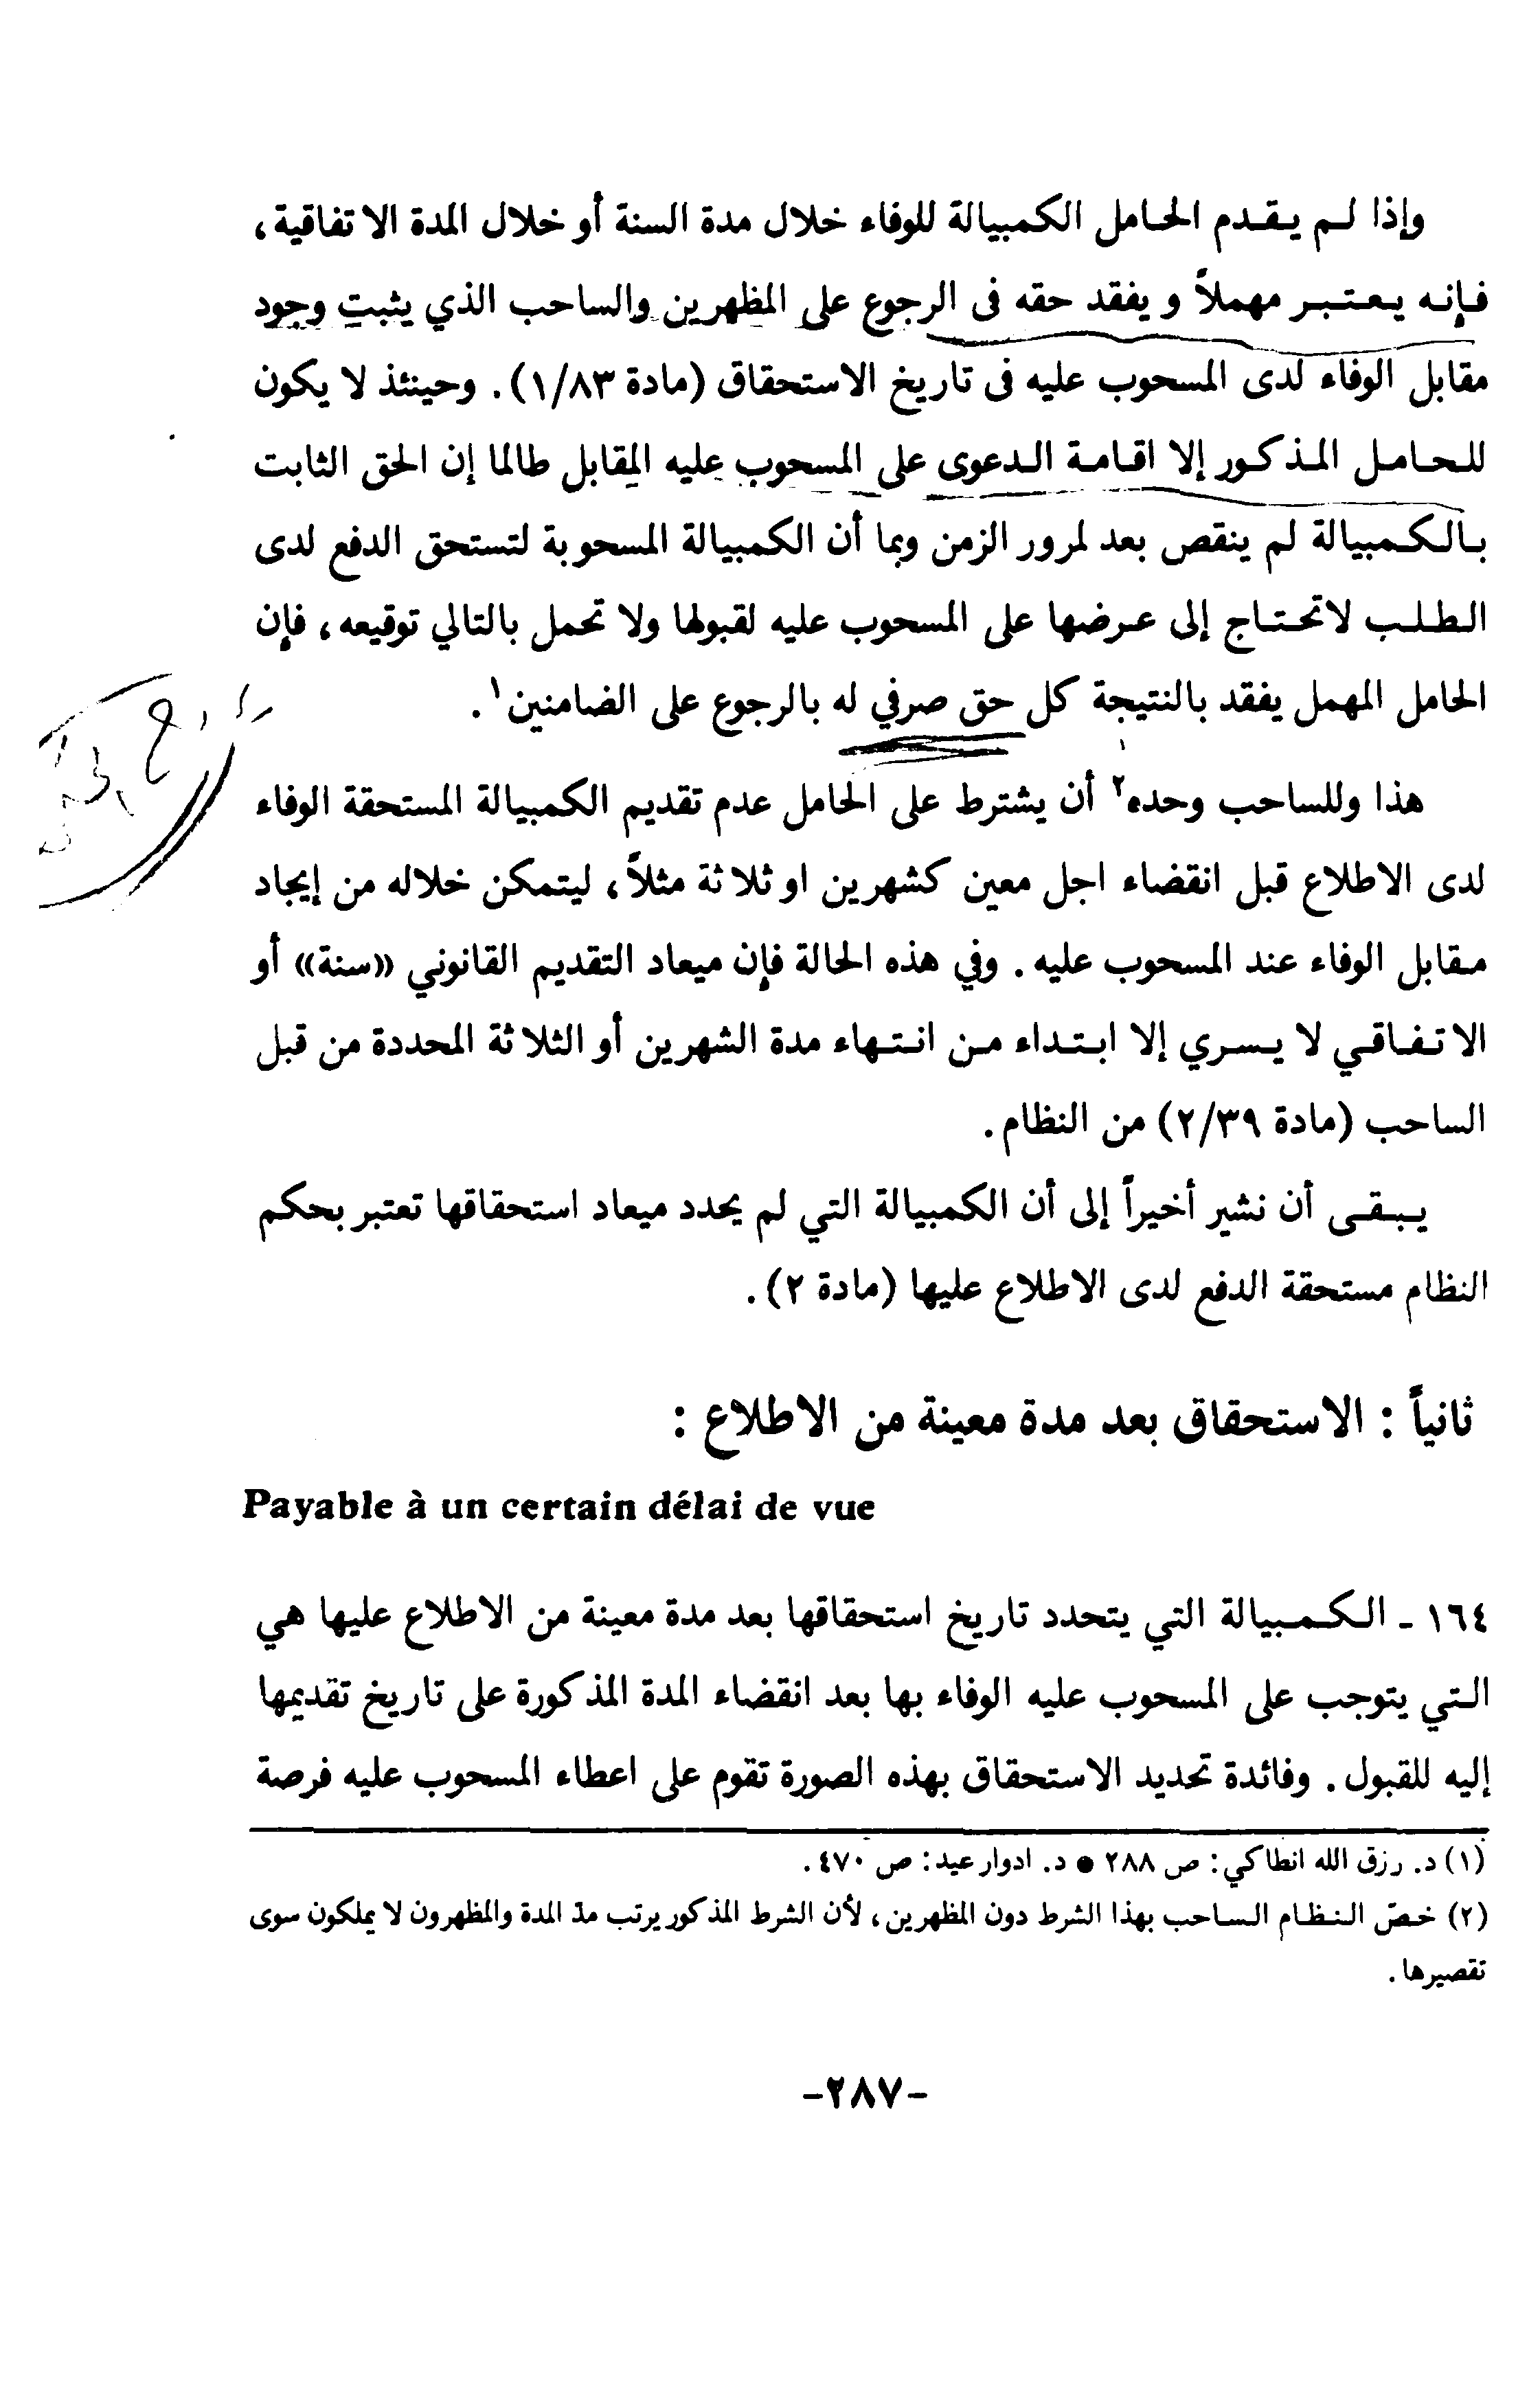 وإذا لم يقدم الحامل الكمبيالة للوفاء خلال مدة السنة أو خلال المدة الاتفاقية،
فإنه يعتبر مهملاً ويفقد حقه في الرجوع على المظهرين والساحب الذي يثبت وجود
مقابل الوفاء لدى المسحوب عليه في تاريخ الاستحقاق (مادة ١/٨٣). وحينئذ لا يكون
للحامل المذكور إلا اقامة الدعوى على المسحوب عليه المقابل طالما إن الحق الثابت
بالكمبيالة لم ينقص بعد لمرور الزمن وبما أن الكمبيالة المسحوبة لتستحق الدفع لدى
الطلب لاتحتاج إلى عرضها على المسحوب عليه لقبولها ولا تحمل بالتالي توقيعه، فإن
الحامل المهمل يفقد بالنتيجة كل حق صرفي له بالرجوع على الضامنين١.
هذا وللساحب وحده٢ أن يشترط على الحامل عدم تقديم الكمبيالة المستحقة الوفاء
لدى الاطلاع قبل انقضاء اجل معين كشهرين او ثلاثة مثلاً، ليتمكن خلاله من إيجاد
مقابل الوفاء عند المسحوب عليه. وفي هذه الحالة فإن ميعاد التقديم القانوني «سنة» أو
الاتفاقي لا يسري إلا ابتداء من انتهاء مدة الشهرين أو الثلاثة المحددة من قبل
الساحب (مادة ٢/٣٩) من النظام.
يبقى أن نشير أخيراً إلى أن الكمبيالة التي لم يحدد ميعاد استحقاقها تعتبر بحكم
النظام مستحقة الدفع لدى الاطلاع عليها (مادة ٢).
ثانياً : الاستحقاق بعد مدة معينة من الاطلاع :
Payable à un certain délai de vue
١٦٤ - الكمبيالة التي يتحدد تاريخ استحقاقها بعد مدة معينة من الاطلاع عليها هي
التي يتوجب على المسحوب عليه الوفاء بها بعد انقضاء المدة المذكورة على تاريخ تقديمها
إليه للقبول. وفائدة تحديد الاستحقاق بهذه الصورة تقوم على اعطاء المسحوب عليه فرصة
(١) د. رزق الله انطاكي: ص ٢٨٨ • د. ادوار عيد: ص ٤٧٠.
(٢) خصّ النظام الساحب بهذا الشرط دون المظهرين، لأن الشرط المذكور يرتب مدّ المدة والمظهرون لا يملكون سوى
تقصيرها.
-٢٨٧-